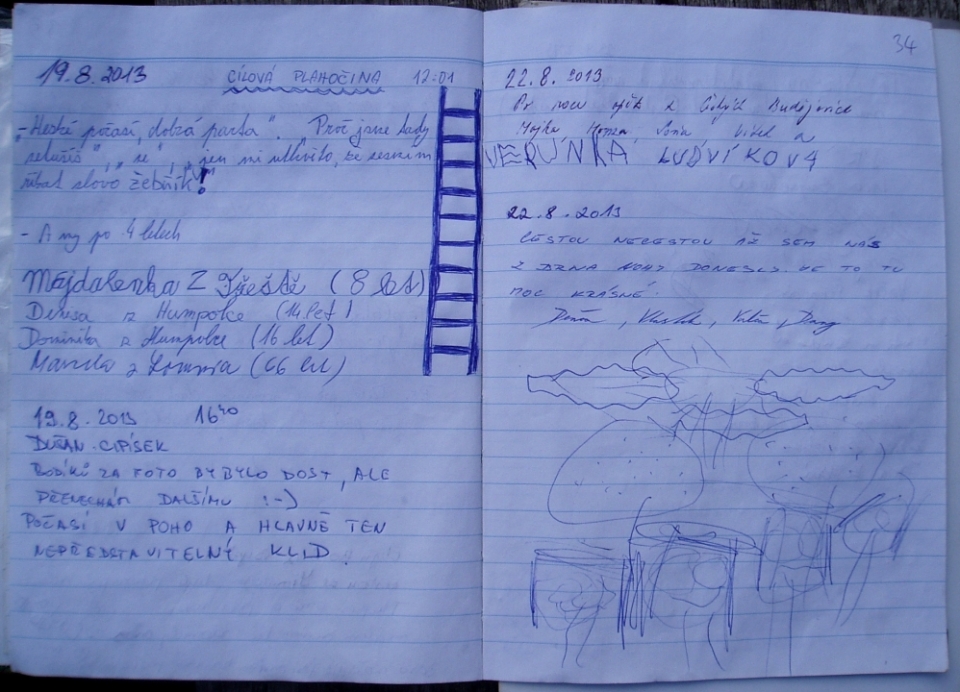 19.8.2013 CÍLOVÁ PLAHOČINA 12:01
„Hezké počasí, dobrá parta". „Proč jsme tady
", „se", „jen mi utkvělo, že nesmím
říkat slovo žebřík"!
- A my po 4 letech
Majdalenka Z Třeště (8 let)
Denisa z Humpolce (14 let)
Dominika z Humpolce (16 let)
Marcela z (66 let)
19.8.2013 16⁴⁰
DUŠAN - CIPÍSEK
BODÍKŮ ZA FOTO BY BYLO DOST, ALE
PŘENECHÁM DALŠÍMU :-)
POČASÍ V POHO A HLAVNĚ TEN
NEPŘEDSTAVITELNÝ KLID.
34
22.8.2013
Po roce opět z Českých Budějovic
Majka, Honza, Soňa, a
VERUNKA LUDVÍKOVÁ
22.8.2013
CESTOU NECESTOU AŽ SEM NÁS
Z DRNA NOHY DONESLY. JE TO TU
MOC KRÁSNÉ.